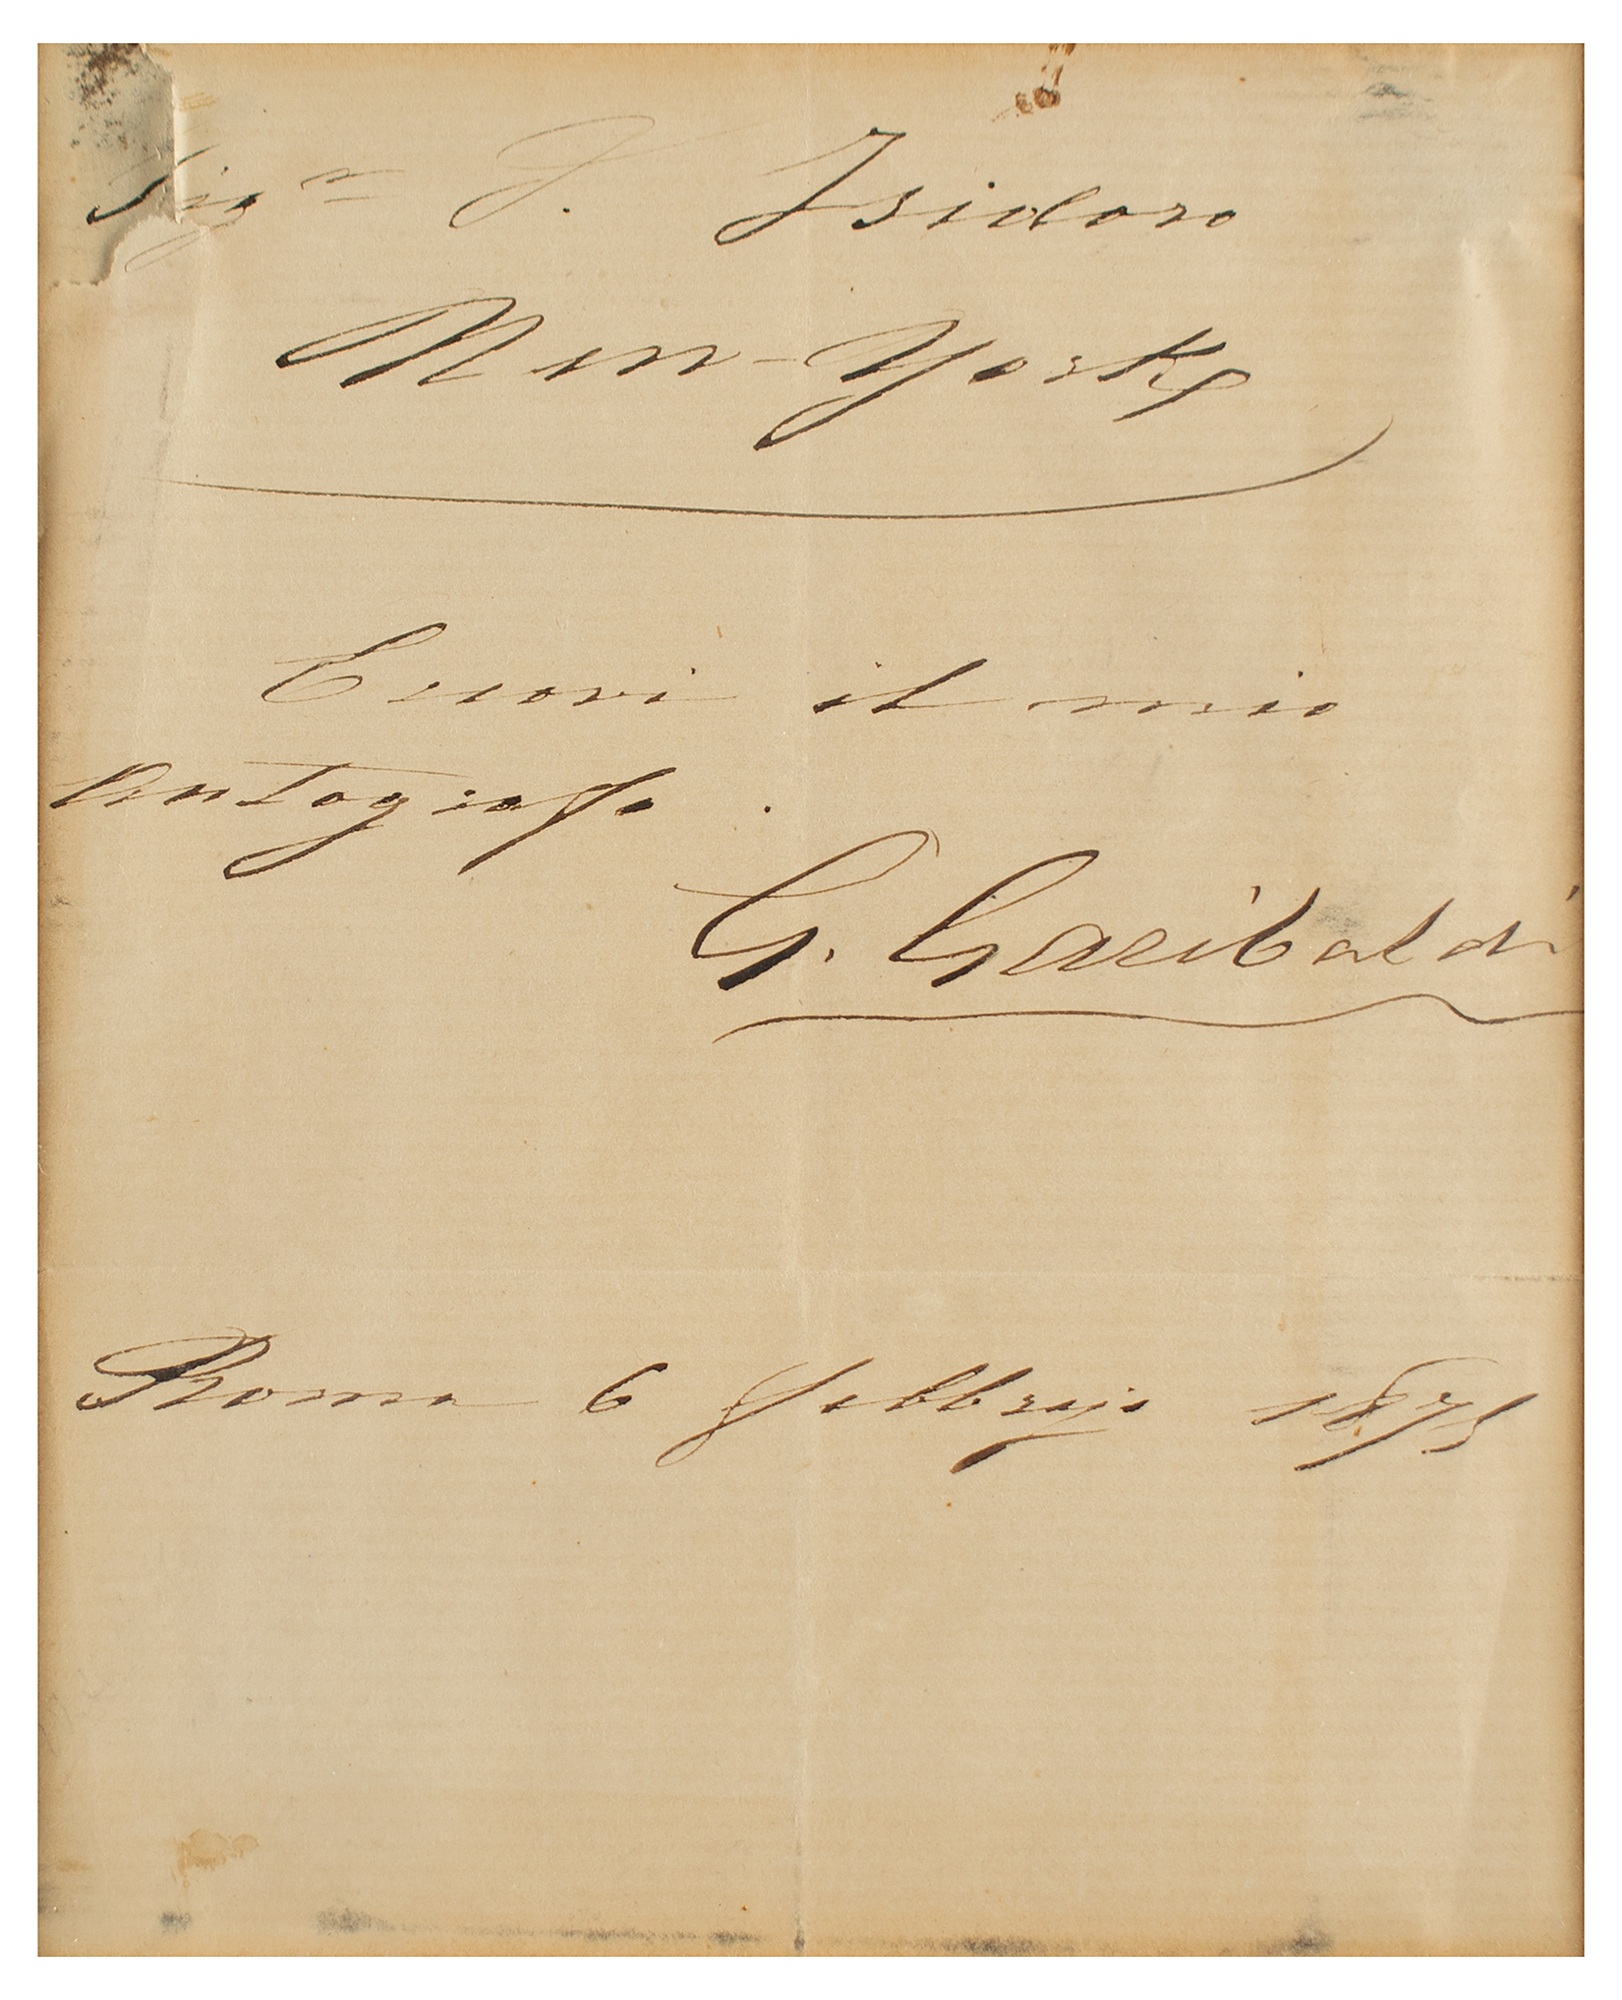 Sig.r F. Isidoro
New-York
Eccovi il mio
Autografo.
G. Garibaldi
Roma 6 Febbrajo 1875